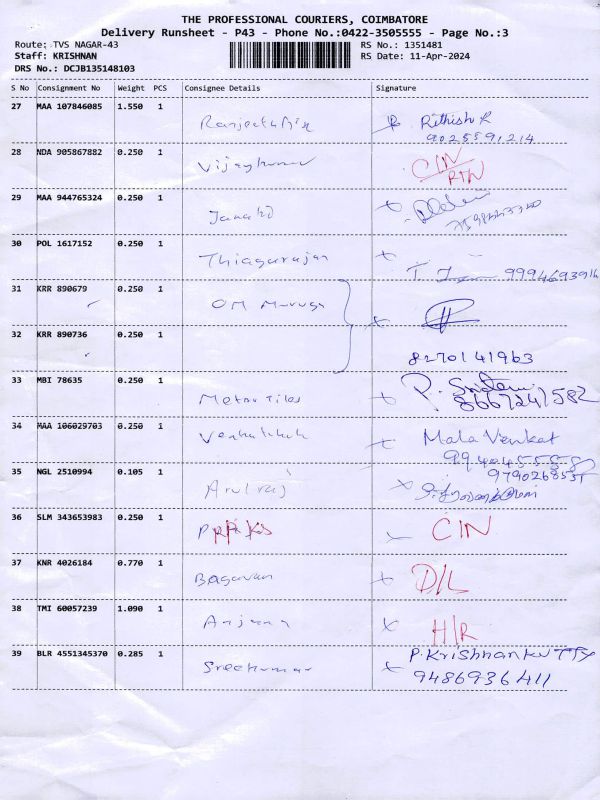 THE PROFESSIONAL COURIERS, COIMBATORE
Delivery Runsheet - P43 - Phone No.:0422-3505555 - Page No.:3
Route: TVS NAGAR-43 RS No.: 1351481
Staff: KRISHNAN RS Date: 11-Apr-2024
DRS No.: DCJB135148103
S No Consignment No Weight PCS Consignee Details Signature
27 MAA 107846085 1.550 1
Rithish R
9025591214
28 NDA 905867882 0.250 1
Vijaykumar CIN
RTN
29 MAA 944765324 0.250 1
Janaki
30 POL 1617152 0.250 1
Thiagarajan
31 KRR 890679 0.250 1
OM Muruga
32 KRR 890736 0.250 1
8270141963
33 MBI 78635 0.250 1
Metro Tiles 8667241582
34 MAA 106029703 0.250 1
Mala Venkat
35 NGL 2510994 0.105 1
Arulraj
36 SLM 343653983 0.250 1
CIN
37 KNR 4026184 0.770 1
Bagavan D/L
38 TMI 60057239 1.090 1
Anjana H/R
39 BLR 4551345370 0.285 1
Sreekumar 9486936411